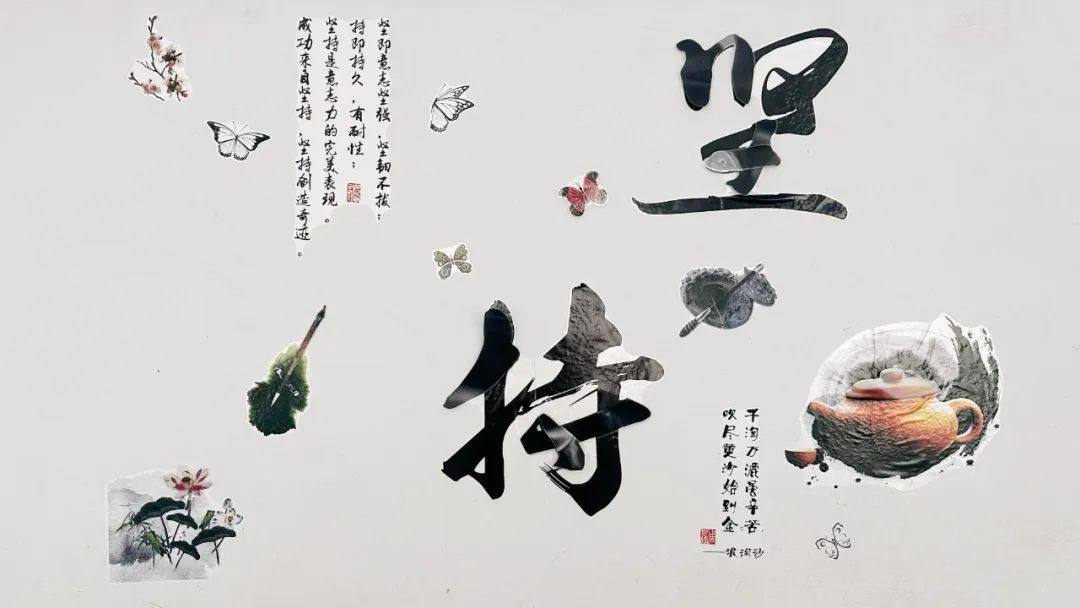 坚
持
坚即意志坚强,坚韧不拔;
持即持久,有耐性;
坚持是意志力的完美表现。
成功来自坚持,坚持创造奇迹。
千淘万漉虽辛苦,
吹尽黄沙始到金
——浪淘沙